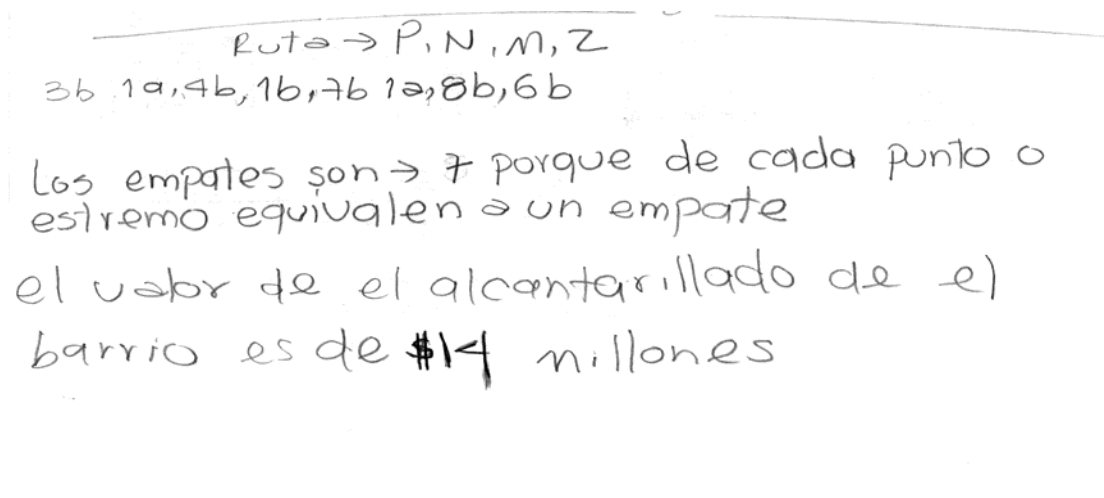 Ruta → P, N, M, Z
3b 1a, 4b, 1b, 7b 1a, 8b, 6b
Los empates son → 7 porque de cada punto o
estremo equivalen a un empate
el valor de el alcantarillado de el
barrio es de $14 millones